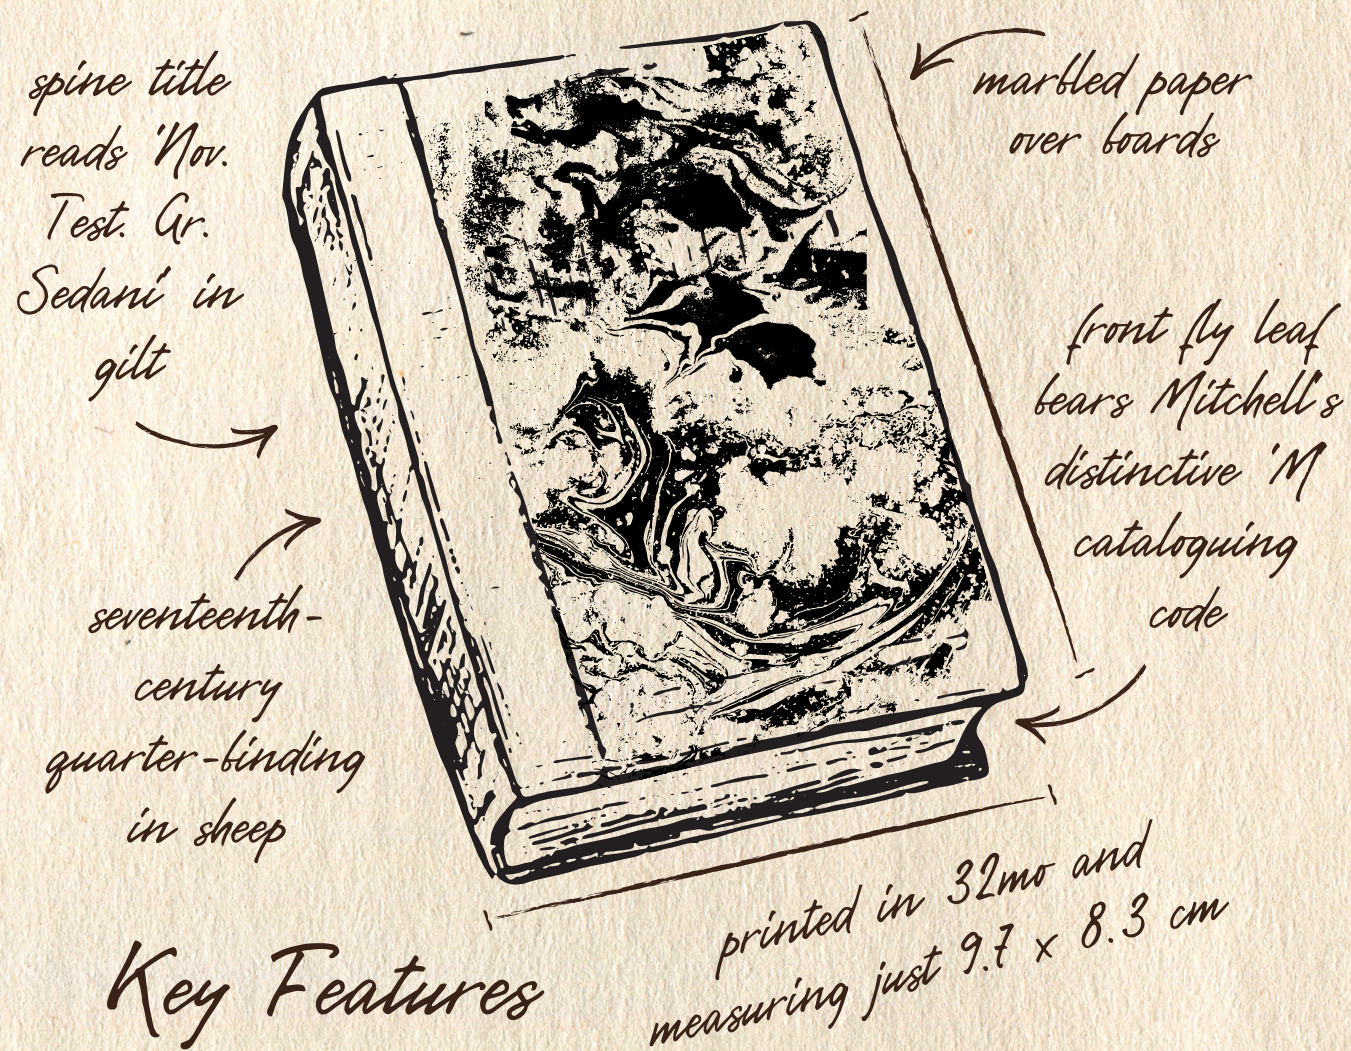 spine title
reads 'Nov.
Test. Gr.
Sedani' in
gilt
marbled paper
over boards
front fly leaf
bears Mitchell's
distinctive 'M'
cataloguing
code
seventeenth-
century
quarter-binding
in sheep
printed in 32mo and
measuring just 9.7 x 8.3 cm
Key Features